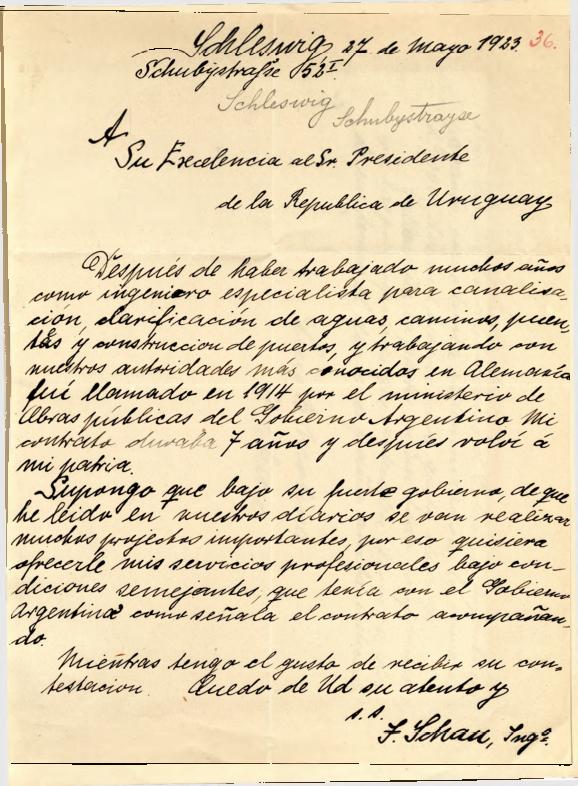 Schleswig 27 de Mayo 1923. 36.
Schubystraße 52I.
Schleswig
Schubystrayse
A
Su Excelencia al Sr. Presidente
de la Republica de Uruguay
Después de haber trabajado muchos años
como ingeniero especialista para canalisa-
cion, clarificación de aguas, caminos, puen-
tes y construccion de puertos, y trabajando con
nuestros autoridades más conocidos en Alemania
fuí llamado en 1914 por el ministerio de
Obras públicas del Gobierno Argentino Mi
contrato duraba 7 años y después volví á
mi patria.
Supongo que bajo su fuerte gobierno, de que
he leido en nuestros diarios se van realizar
muchos projectos importantes, por eso quisiera
ofrecerle mis servicios profesionales bajo con-
diciones semejantes, que tenía con el Gobierno
Argentino como señala el contrato acompañan-
do.
Mientras tengo el gusto de recibir su con-
testacion. Quedo de Ud su atento y
s.s.
F. Schau, Ingo.